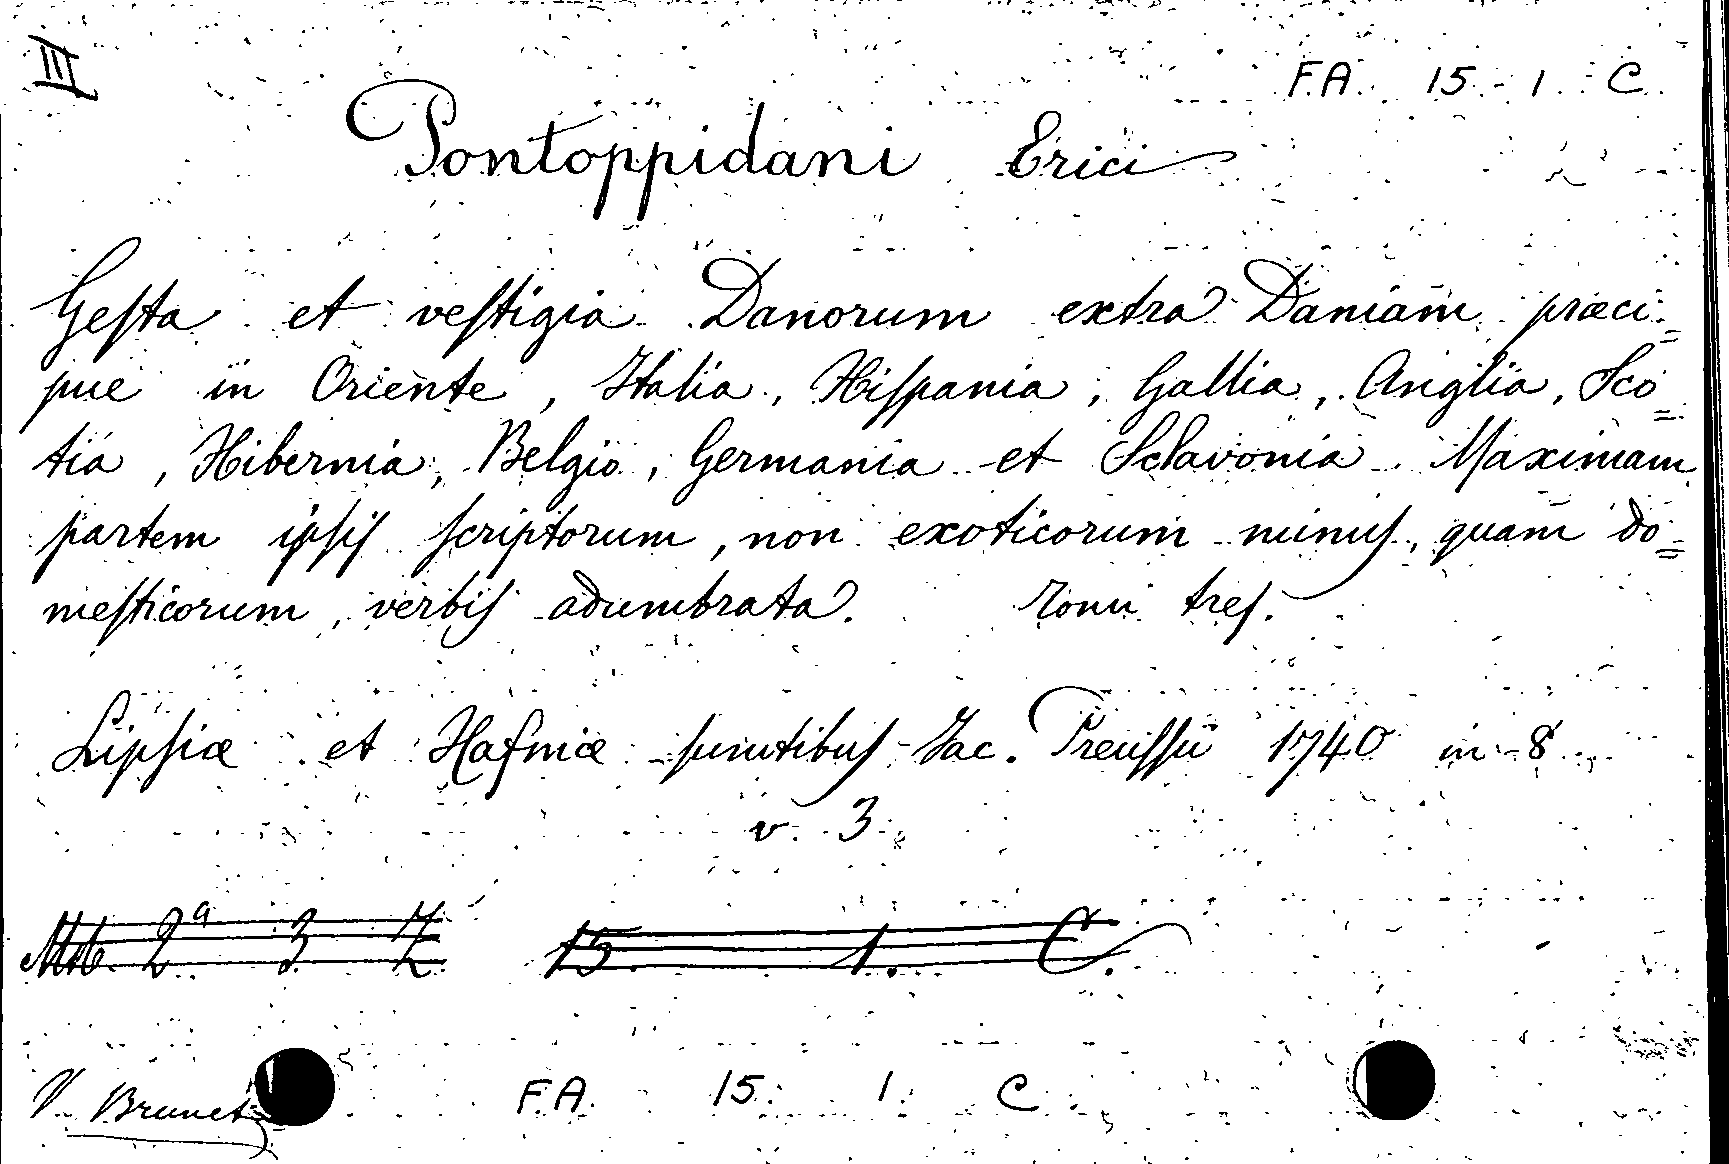 III
FA 15 1 C
Pontoppidani Erici
Gesta et vestigia Danorum extra Daniam præci=
pue in Oriente, Italia, Hispania, Gallia, Anglia, Sco=
tia, Hibernia, Belgio, Germania et Sclavonia Maximam
partem ipsis scriptorum, non exoticorum minus, quam do=
mesticorum, verbis adumbrata. Tomi tres.
Lipsiæ et Hafniæ sumtibus Jac. Preussii 1740 in 8
v. 3
2a 3 Z 15. 1. C.
V. Brunet
FA 15 1 C